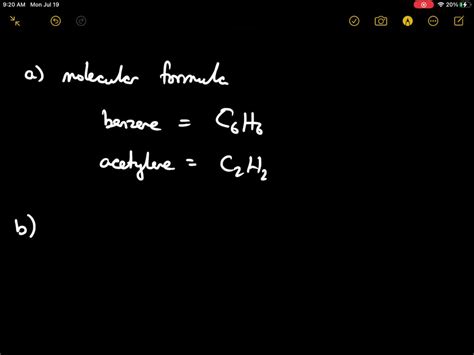 9:20 AM Mon Jul 19
20%
a) molecular formula
benzene = C₆H₆
acetylene = C₂H₂
b)